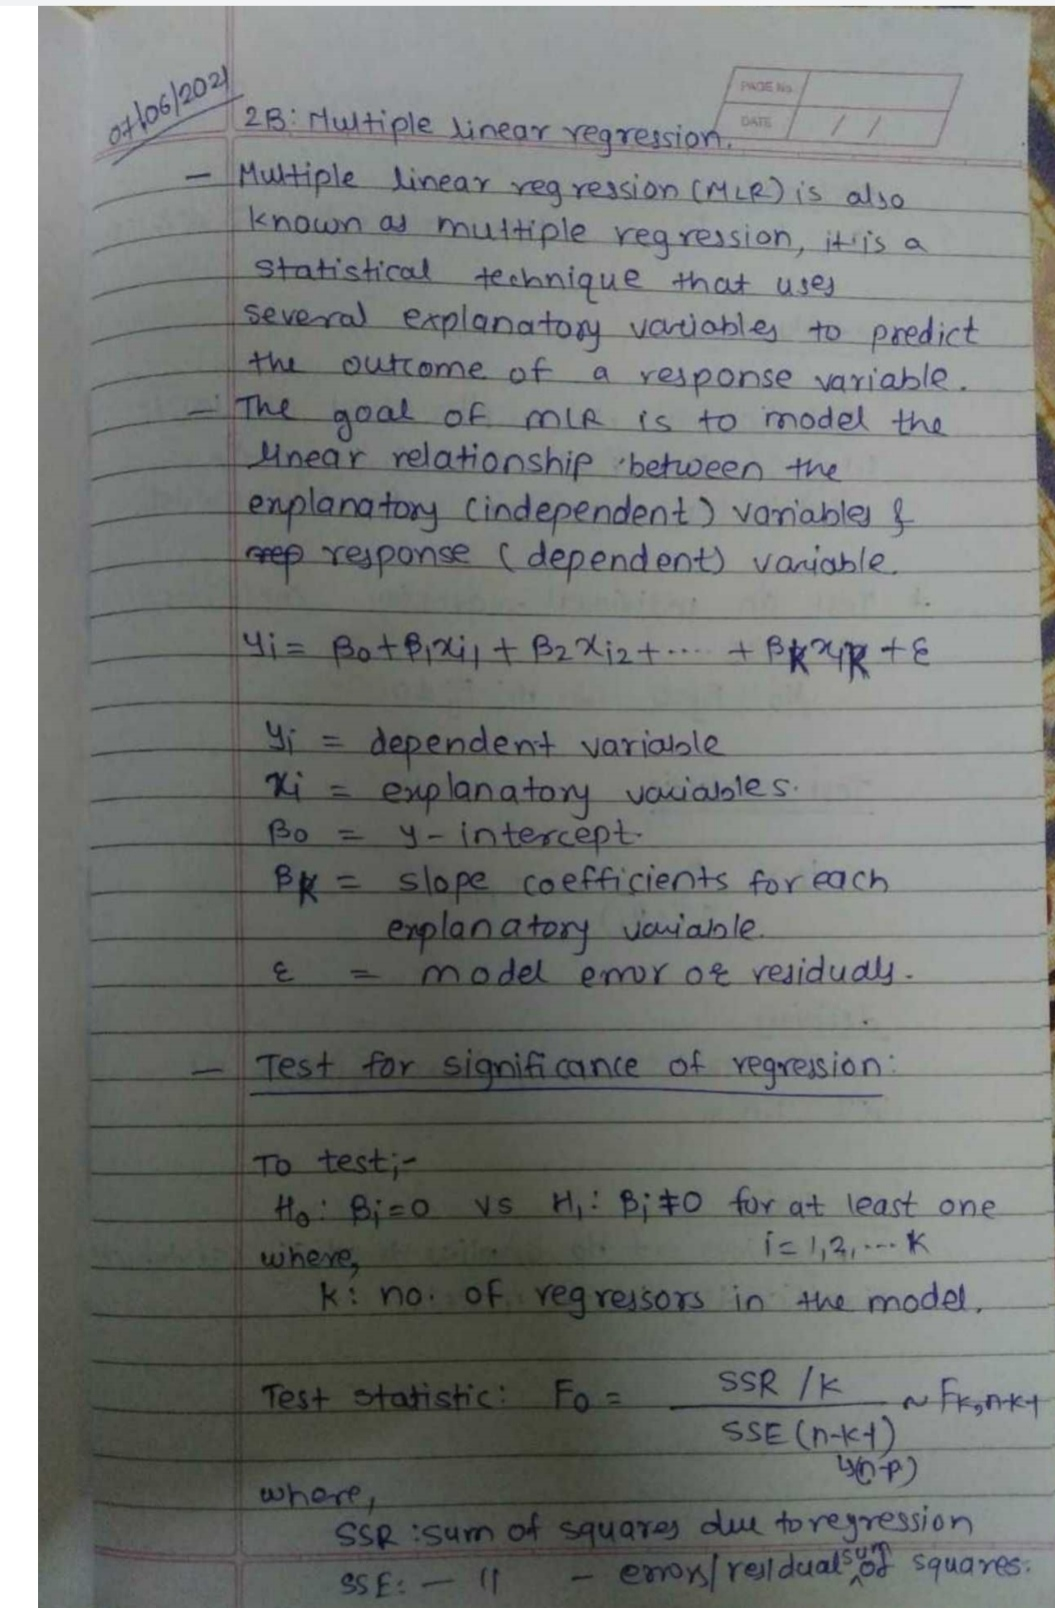 07/06/2021
PAGE No.
DATE / /
2B: Multiple linear regression.
- Multiple linear regression (MLR) is also
known as multiple regression, it is a
statistical technique that uses
several explanatory variables to predict
the outcome of a response variable.
- The goal of MLR is to model the
linear relationship between the
explanatory (independent) variables &
rep response (dependent) variable.
yi = β0 + β1xi1 + β2xi2 + .... + βkxik + ε
yi = dependent variable
xi = explanatory variables.
β0 = y-intercept.
βk = slope coefficients for each
explanatory variable.
ε = model error or residuals.
- Test for significance of regression:
To test;-
H0: βi=0 vs H1: βi≠0 for at least one
i=1,2,...k
where,
k: no. of regressors in the model.
Test statistic: F0 = SSR /k
~ Fk,n-k-1
SSE (n-k-1)
↳(n-p)
where,
SSR : sum of squares due to regression
SSE: - 11 - errors/residual sum of squares.